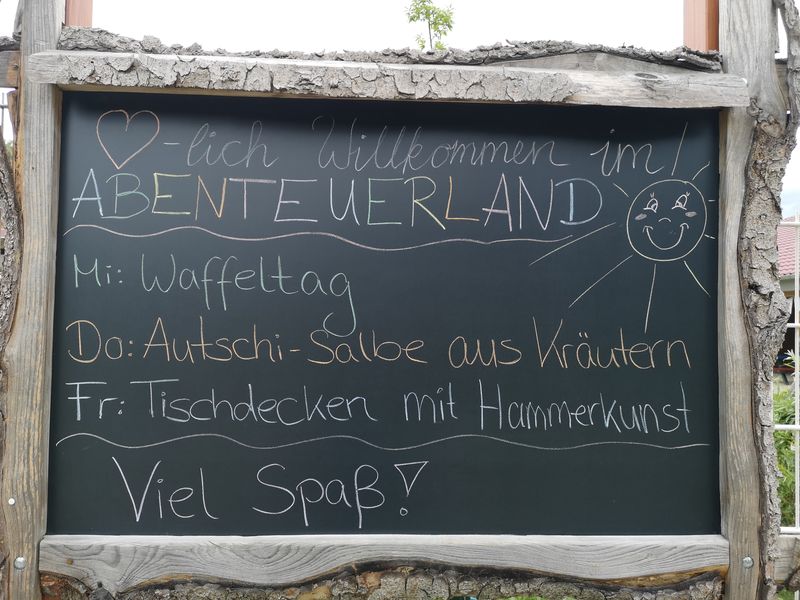 ♡-lich Willkommen im
ABENTEUERLAND
Mi: Waffeltag
Do: Autschi-Salbe aus Kräutern
Fr: Tischdecken mit Hammerkunst
Viel Spaß!